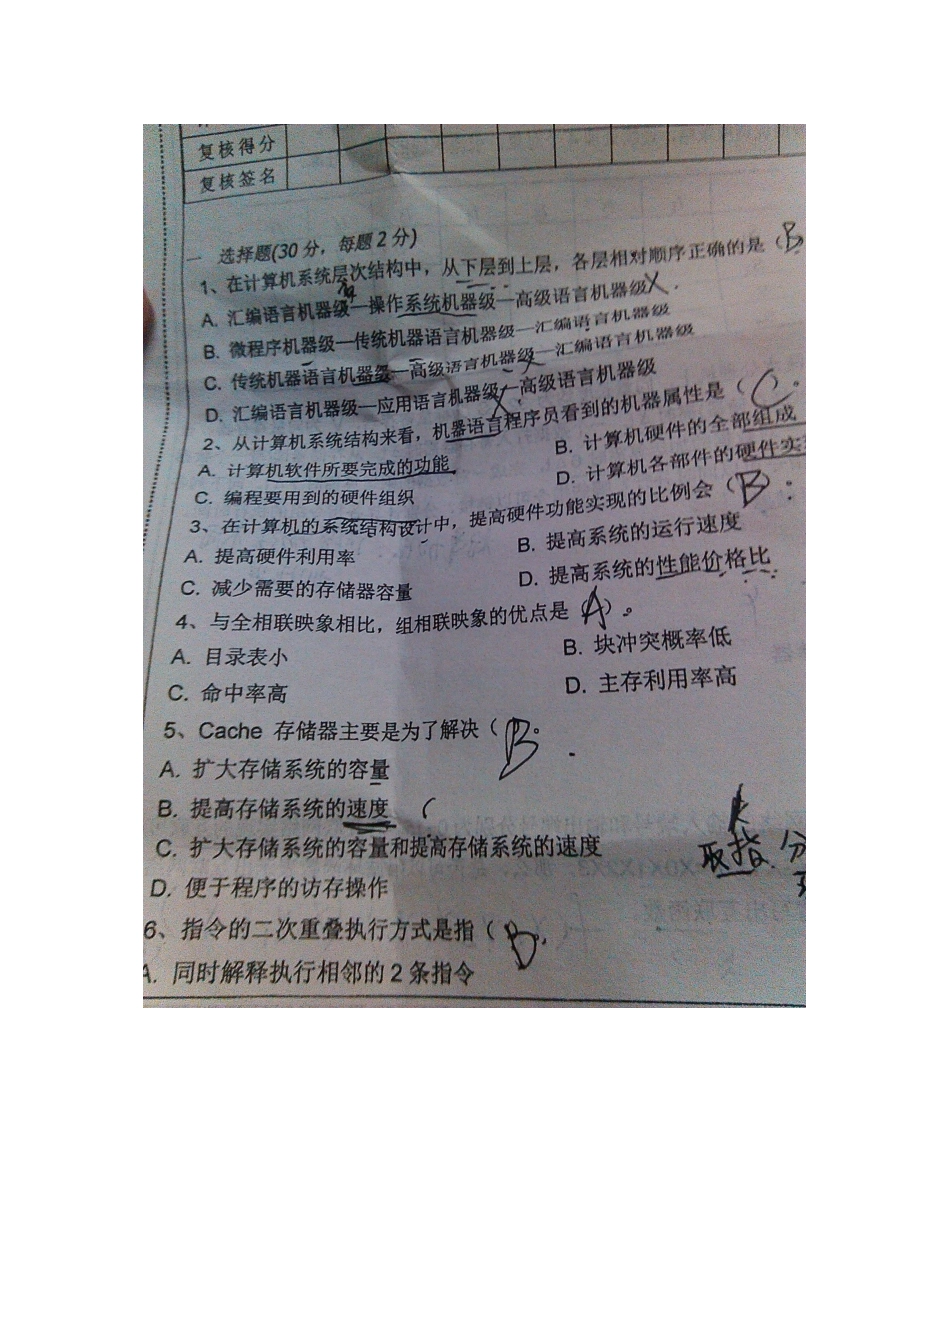 复核得分
复核签名
一 选择题(30分，每题2分)
1、在计算机系统层次结构中，从下层到上层，各层相对顺序正确的是（B）
A. 汇编语言机器级—操作系统机器级—高级语言机器级 X.
B. 微程序机器级—传统机器语言机器级—汇编语言机器级
C. 传统机器语言机器级—高级语言机器级—汇编语言机器级
D. 汇编语言机器级—应用语言机器级—高级语言机器级
2、从计算机系统结构来看，机器语言程序员看到的机器属性是（C。
A. 计算机软件所要完成的功能 B. 计算机硬件的全部组成
C. 编程要用到的硬件组织 D. 计算机各部件的硬件实
3、在计算机的系统结构设计中，提高硬件功能实现的比例会（B）：
A. 提高硬件利用率 B. 提高系统的运行速度
C. 减少需要的存储器容量 D. 提高系统的性能价格比
4、与全相联映象相比，组相联映象的优点是（A）。
A. 目录表小 B. 块冲突概率低
C. 命中率高 D. 主存利用率高
5、Cache 存储器主要是为了解决（B。
A. 扩大存储系统的容量
B. 提高存储系统的速度（
C. 扩大存储系统的容量和提高存储系统的速度
取指. 分
D. 便于程序的访存操作
6、指令的二次重叠执行方式是指（B。
A. 同时解释执行相邻的2条指令